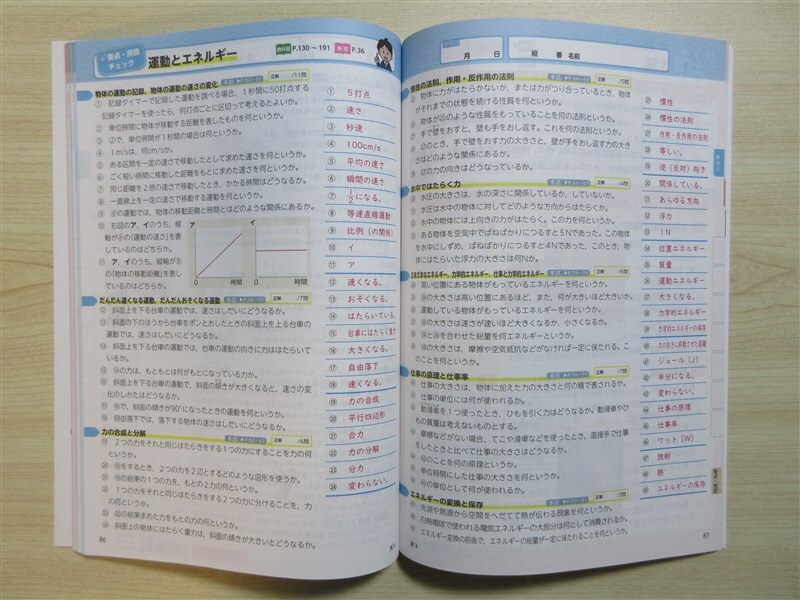 要点・用語
チェック
運動とエネルギー
教科書 P.130～191
P.36
物体の運動の記録，物体の運動の速さの変化
正解 /11問
① 記録タイマーで記録した運動を調べる場合，1秒間に50打点する
記録タイマーを使ったら，何打点ごとに区切って考えるとよいか。
② 単位時間に物体が移動する距離を表したものを何というか。
③ ②で，単位時間が1秒間の場合は何というか。
④ 1m/sは，何cm/sか。
⑤ ある区間を一定の速さで移動したとして求めた速さを何というか。
⑥ ごく短い時間に移動した距離をもとに求めた速さを何というか。
⑦ 同じ距離を2倍の速さで移動したとき，かかる時間はどうなるか。
⑧ 一直線上を一定の速さで移動する運動を何というか。
⑨ ⑧の運動では，物体の移動距離と時間とはどのような関係にあるか。
⑩ 右図のア，イのうち，縦
軸が⑧の「運動の速さ」を表
しているのはどちらか。
⑪ ア，イのうち，縦軸が⑧
の「物体の移動距離」を表し
ているのはどちらか。
ア
イ
0 時間
0 時間
だんだん速くなる運動，だんだんおそくなる運動
正解 /7問
⑫ 斜面上を下る台車の運動では，速さはしだいにどうなるか。
⑬ 斜面の下のほうから台車をポンとおしたときの斜面上を上る台車
の運動では，速さはしだいにどうなるか。
⑭ 斜面上を下る台車の運動では，台車の運動の向きに力ははたらいて
いるか。
⑮ ⑭の力は，もともとは何がもとになっている力か。
⑯ 斜面上を下る台車の運動で，斜面の傾きが大きくなると，速さの変
化のしかたはどうなるか。
⑰ ⑯で，斜面の傾きが90°になったときの運動を何というか。
⑱ 自由落下では，落下する物体の速さはしだいにどうなるか。
力の合成と分解
正解 /6問
⑲ 2つの力をそれと同じはたらきをする1つの力にすることを力の何
というか。
⑳ ⑲をするとき，2つの力を2辺とするどのような図形を使うか。
㉑ ⑲の結果の1つの力を，もとの2力の何というか。
㉒ 1つの力をそれと同じはたらきをする2つの力に分けることを，力
の何というか。
㉓ ㉒の結果求めた力をもとの力の何というか。
㉔ 斜面上の物体にはたらく重力は，斜面の傾きが大きいとどうなるか。
① 5打点
② 速さ
③ 秒速
④ 100cm/s
⑤ 平均の速さ
⑥ 瞬間の速さ
⑦ 1/2になる。
⑧ 等速直線運動
⑨ 比例（の関係）
⑩ イ
⑪ ア
⑫ 速くなる。
⑬ おそくなる。
⑭ はたらいている。
⑮ 台車にはたらく重力
⑯ 大きくなる。
⑰ 自由落下
⑱ 速くなる。
⑲ 力の合成
⑳ 平行四辺形
㉑ 合力
㉒ 力の分解
㉓ 分力
㉔ 変わらない。
86
月 日 組 番 名前
慣性の法則，作用・反作用の法則
正解 /5問
物体に力がはたらかないか，または力がつり合っているとき，物体
がそれまでの状態を続ける性質を何というか。
物体が㉕のような性質をもっていることを何の法則というか。
手で壁をおすと，壁も手をおし返す。これを何の法則というか。
㉗のとき，手で壁をおす力の大きさと，壁が手をおし返す力の大き
さはどのような関係にあるか。
㉗の力の向きはどうなっているか。
水中ではたらく力
水圧の大きさは，水の深さに関係しているか，していないか。
水圧は水中の物体に対してどのような方向からはたらくか。
水中の物体には上向きの力がはたらく。この力を何というか。
ある物体を空気中でばねばかりにつるすと5Nであった。この物体
を水中にしずめ，ばねばかりにつるすと4Nであった。このとき，物
体にはたらいた浮力の大きさは何Nか。
さまざまなエネルギー，力学的エネルギー，仕事と力学的エネルギー
高い位置にある物体がもっているエネルギーを何というか。
㉞の大きさは高い位置にあるほど，また，何が大きいほど大きいか。
運動している物体がもっているエネルギーを何というか。
㊱の大きさは速さが速いほど大きくなるか，小さくなるか。
㉞と㊱を合わせた総量を何エネルギーというか。
㊳の大きさは，摩擦や空気抵抗などがなければ一定に保たれる。こ
のことを何というか。
仕事の原理と仕事率
仕事の大きさは，物体に加えた力の大きさと何の積で表されるか。
仕事の単位には何が使われるか。
動滑車を1つ使ったとき，ひもを引く力はどうなるか。動滑車やひ
もの質量は考えないものとする。
摩擦などがない場合，てこや滑車などを使ったとき，直接手で仕事
をしたときと比べて仕事の大きさはどうなるか。
㊸のことを何の原理というか。
単位時間にした仕事の大きさを何というか。
㊺の単位として何が使われるか。
エネルギーの変換と保存
光源や熱源から空間をへだてて熱が伝わる現象を何というか。
白熱電球で使われる電気エネルギーの大部分は何として消費されるか。
エネルギー変換の前後で，エネルギーの総量が一定に保たれることを何というか。
㉕ 慣性
㉖ 慣性の法則
㉗ 作用・反作用の法則
㉘ 等しい。
㉙ 逆（反対）向き
㉚ 関係している。
㉛ あらゆる方向
㉜ 浮力
㉝ 1N
㉞ 位置エネルギー
㉟ 質量
㊱ 運動エネルギー
㊲ 大きくなる。
㊳ 力学的エネルギー
㊴ 力学的エネルギーの保存
㊵ 力の向きに移動させた距離
㊶ ジュール〔J〕
㊷ 半分になる。
㊸ 変わらない。
㊹ 仕事の原理
㊺ 仕事率
㊻ ワット〔W〕
㊼ 放射
㊽ 熱
㊾ エネルギーの保存
87